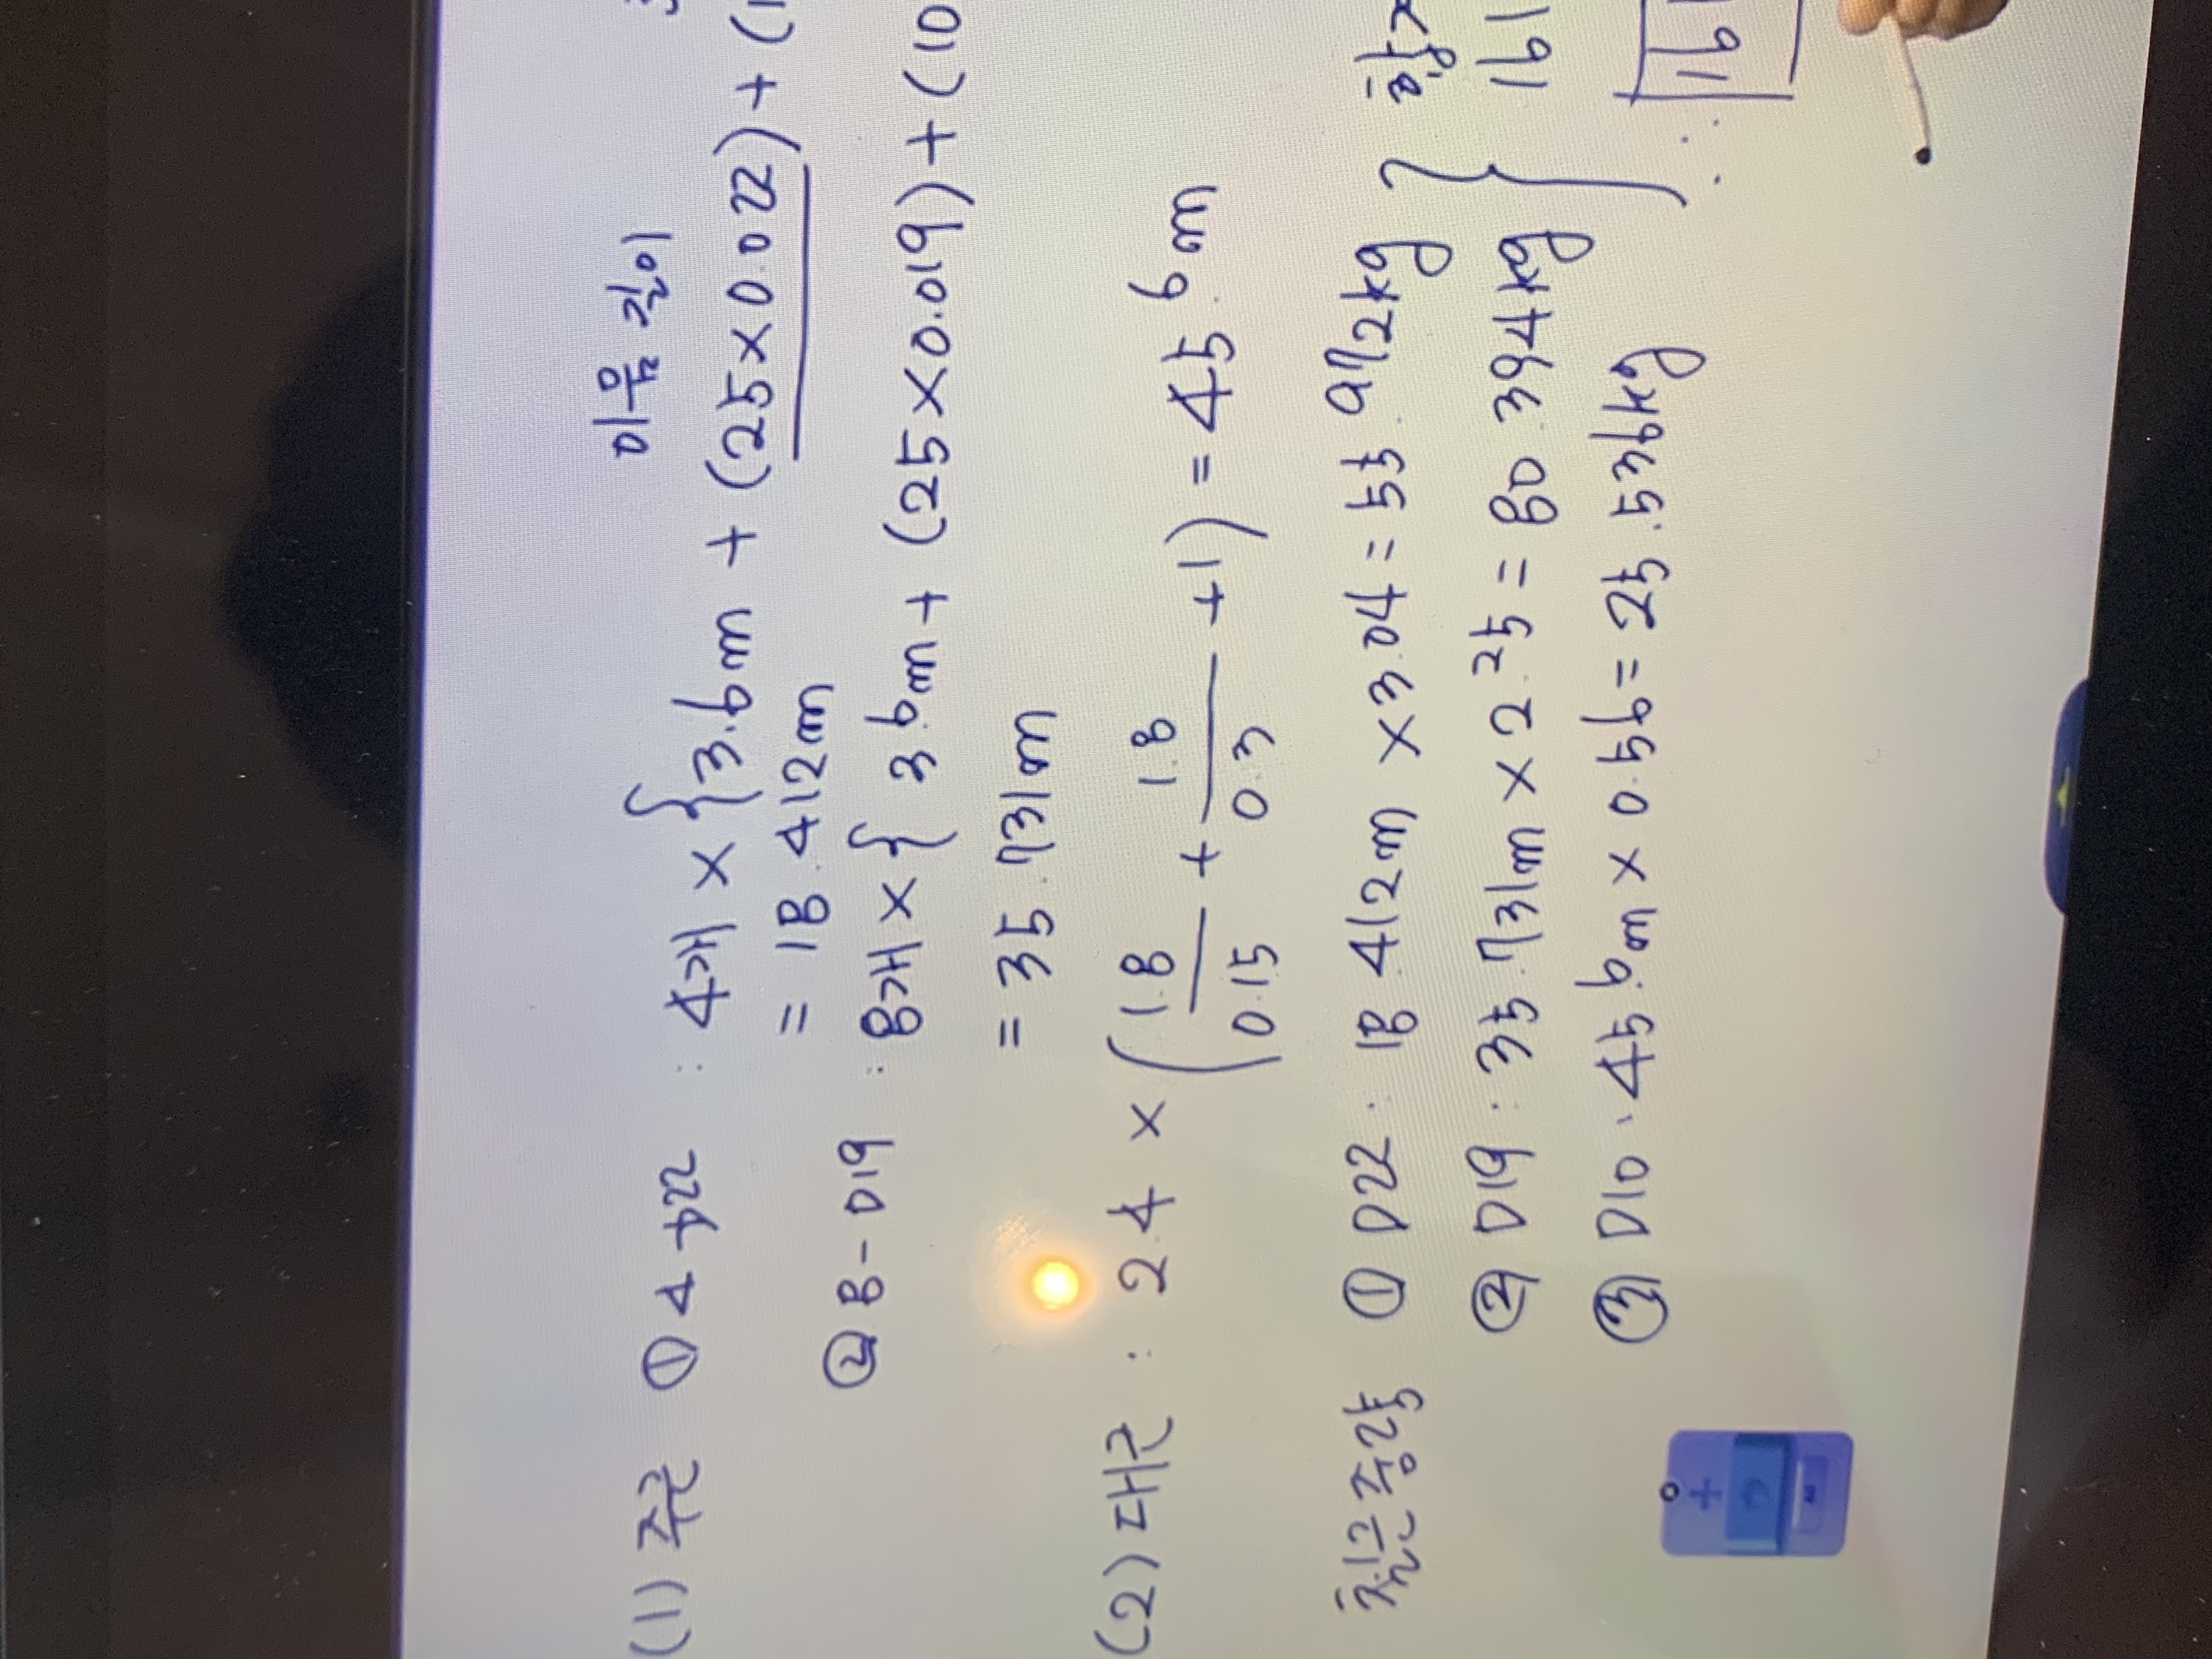 이음 길이
(1) 주근 ① 4-D22 : 4개 × {3.6m + (25×0.022) + (1
= 18.412m
② 8-D19 : 8개 × { 3.6m + (25×0.019) + (10
= 35.731m
(2) 대근 : 2.4 × (1.8/0.15 + 1.8/0.3 +1) = 45.6m
철근중량 ① D22 : 18.412m × 3.04 = 55.972kg
② D19 : 35.731m × 2.25 = 80.394kg
161
③ D10 : 45.6m × 0.56 = 25.536kg
∴ 161